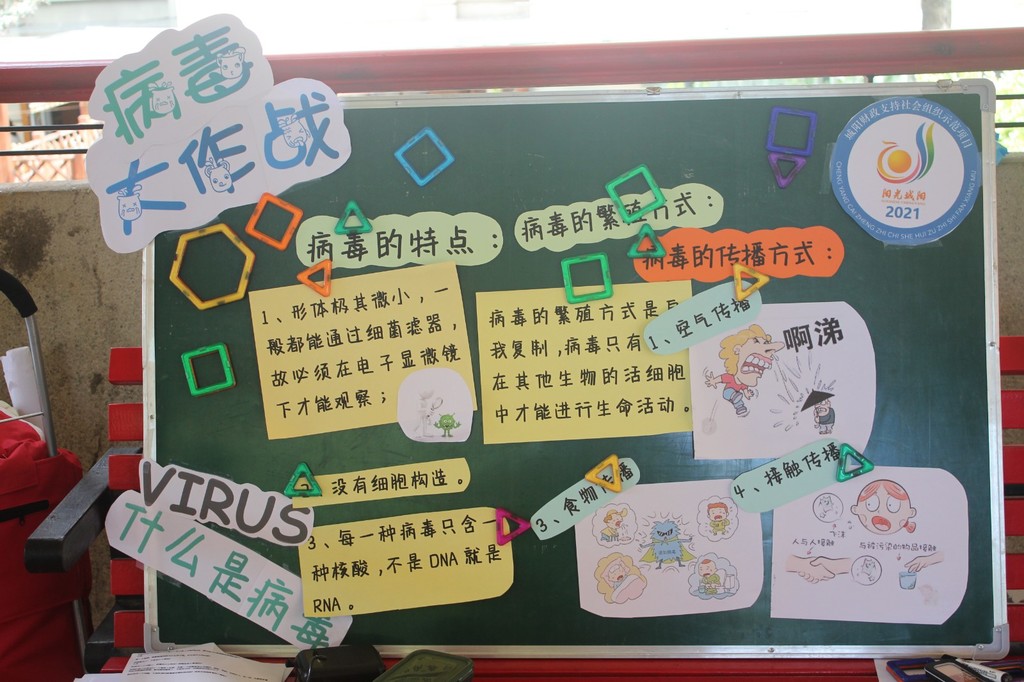 病毒
大作战
城阳财政支持社会组织示范项目
阳光城阳
2021
CHENG YANG CAI ZHENG ZHI CHI SHE HUI ZU ZHI SHI FAN XIANG MU
病毒的特点：
病毒的繁殖方式：
病毒的传播方式：
1、形体极其微小，一
般都能通过细菌滤器，
故必须在电子显微镜
下才能观察；
病毒的繁殖方式是自
我复制，病毒只有
在其他生物的活细胞
中才能进行生命活动。
1、空气传播
啊涕
没有细胞构造。
3、每一种病毒只含一
种核酸，不是DNA就是
RNA。
3、食物传播
4、接触传播
飞沫
人与人接触
与被污染的物品接触
VIRUS
什么是病毒